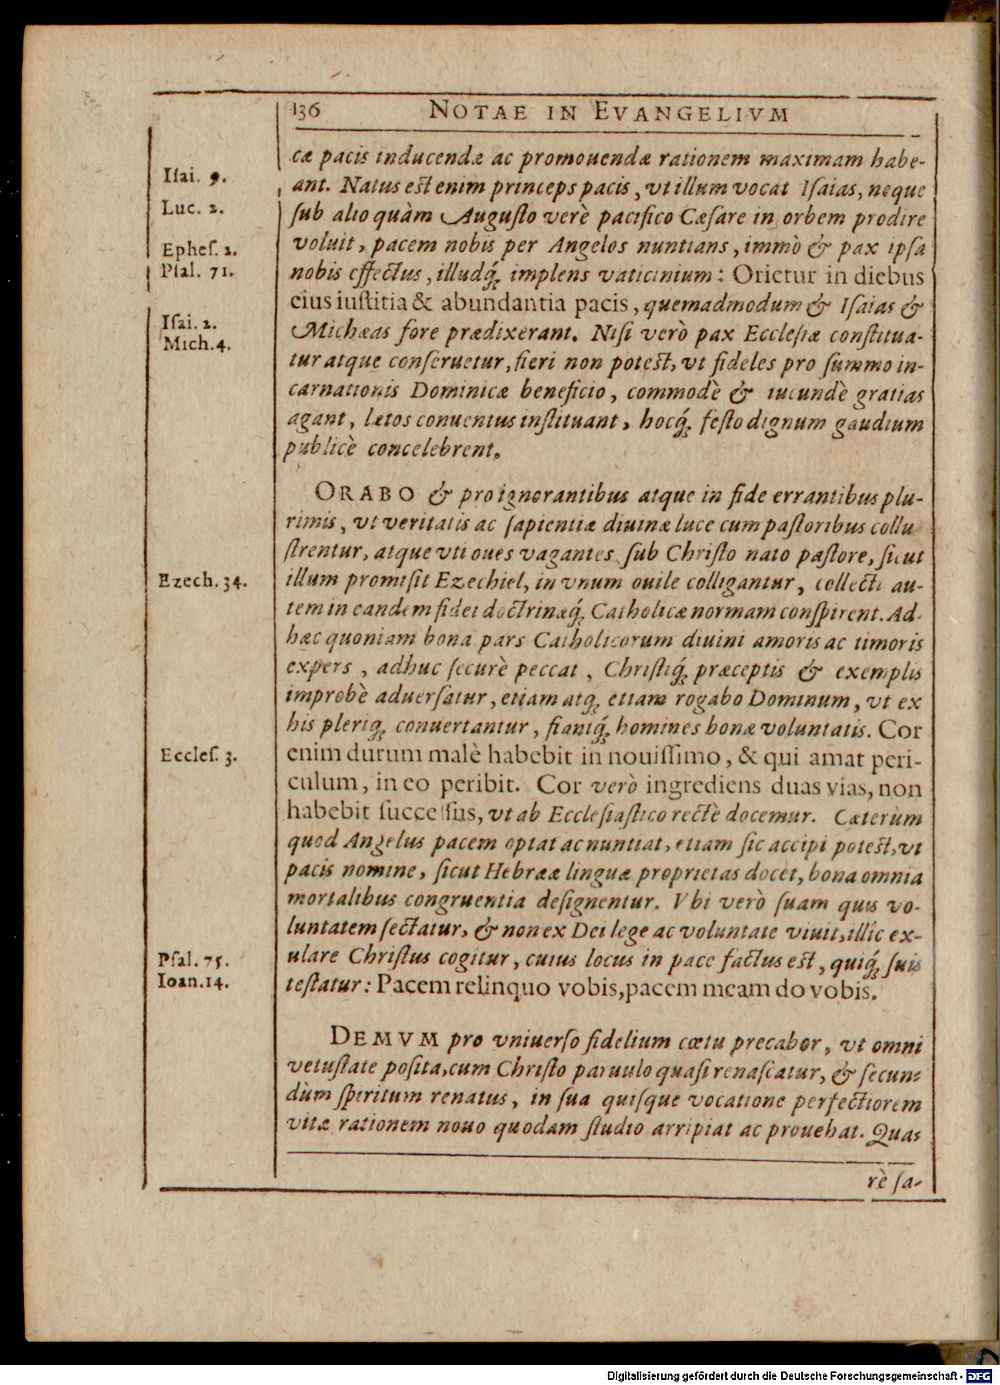 136 NOTAE IN EVANGELIVM
cæ pacis inducendæ ac promouendæ rationem maximam habe-
Isai. 9.
ant. Natus est enim princeps pacis, vt illum vocat Isaias, neque
Luc. 2.
sub alio quàm Augusto verè pacifico Cæsare in orbem prodire
Ephes. 2.
voluit, pacem nobis per Angelos nuntians, immò & pax ipsa
Psal. 71.
nobis effectus, illudq́; implens vaticinium: Orietur in diebus
eius iustitia & abundantia pacis, quemadmodum & Isaias &
Isai. 2.
Mich. 4.
Michæas fore prædixerant. Nisi verò pax Ecclesiæ constitua-
tur atque conseruetur, fieri non potest, vt fideles pro summo in-
carnationis Dominicæ beneficio, commodè & iucundè gratias
agant, lætos conuentus instituant, hocq́; festo dignum gaudium
publicè concelebrent.
ORABO & pro ignorantibus atque in fide errantibus plu-
rimis, vt veritatis ac sapientiæ diuinæ luce cum pastoribus collu
strentur, atque vti oues vagantes sub Christo nato pastore, sicut
Ezech. 34.
illum promisit Ezechiel, in vnum ouile colligantur, collecti au-
tem in eandem fidei doctrinæq́; Catholicæ normam conspirent. Ad-
hæc quoniam bona pars Catholicorum diuini amoris ac timoris
expers, adhuc securè peccat, Christiq́; præceptis & exemplis
improbè aduersatur, etiam atq; etiam rogabo Dominum, vt ex
his pleriq; conuertantur, fiantq́; homines bonæ voluntatis. Cor
Eccles. 3.
enim durum malè habebit in nouissimo, & qui amat peri-
culum, in eo peribit. Cor verò ingrediens duas vias, non
habebit successus, vt ab Ecclesiastico rectè docemur. Cæterùm
quod Angelus pacem optat ac nuntiat, etiam sic accipi potest, vt
pacis nomine, sicut Hebrææ linguæ proprietas docet, bona omnia
mortalibus congruentia designentur. Vbi verò suam quis vo-
luntatem sectatur, & non ex Dei lege ac voluntate viuit, illic ex-
Psal. 75.
ulare Christus cogitur, cuius locus in pace factus est, quiq́; suis
Ioan. 14.
testatur: Pacem relinquo vobis, pacem meam do vobis.
DEMVM pro vniuerso fidelium cœtu precabor, vt omni
vetustate posita, cum Christo paruulo quasi renascatur, & secun-
dùm spiritum renatus, in sua quisque vocatione perfectiorem
vitæ rationem nouo quodam studio arripiat ac prouehat. Qua-
rè sa-
Digitalisierung gefördert durch die Deutsche Forschungsgemeinschaft - DFG